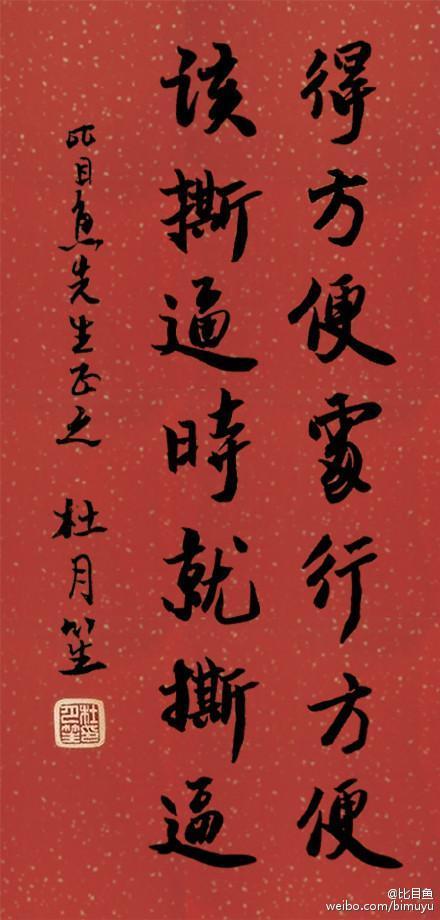 得方便處行方便
該撕逼時就撕逼
比目魚先生正之 杜月笙
@比目鱼
weibo.com/bimuyu